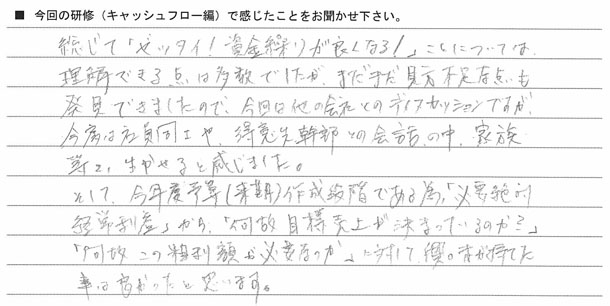 ■ 今回の研修（キャッシュフロー編）で感じたことをお聞かせ下さい。
総じて「ゼッタイ！資金繰りが良くなる！」ことについては、
理解できる点は多数でしたが、まだまだ自分不足な点も
発見できましたので、今回は他の会社とのディスカッションですが、
今後は社員同士や、得意先幹部との会話の中、家族
等で、生かせると感じました。
そして、今年度予算（来期）作成段階である為、「必要絶対
経常利益」から、「何故目標売上が決まっているのか？」
「何故この粗利額が必要なのか」に対して、得た
事は多かったと思います。